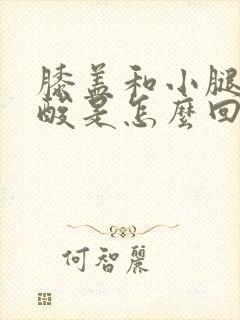 膝盖和小腿
酸是怎麼回
何智麗